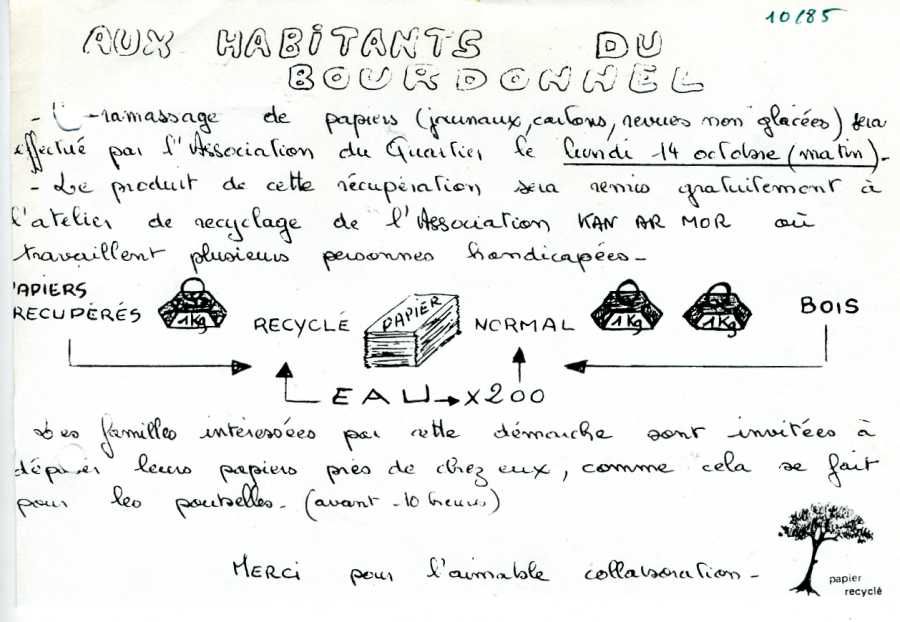 10/85
AUX HABITANTS DU
BOURDONNEL
- Un ramassage de papiers (journaux, cartons, revues non glacées) sera
effectué par l'Association du Quartier le lundi 14 octobre (matin)-
- Le produit de cette récupération sera remis gratuitement à
l'atelier de recyclage de l'Association KAN AR MOR où
travaillent plusieurs personnes handicapées-
PAPIERS
RECUPÉRÉS 1 Kg RECYCLÉ PAPIER NORMAL 1 Kg 1 Kg BOIS
EAU → x200
Les familles intéressées par cette démarche sont invitées à
déposer leurs papiers près de chez eux, comme cela se fait
pour les poubelles- (avant 10 heures)
MERCI pour l'aimable collaboration-
papier
recyclé